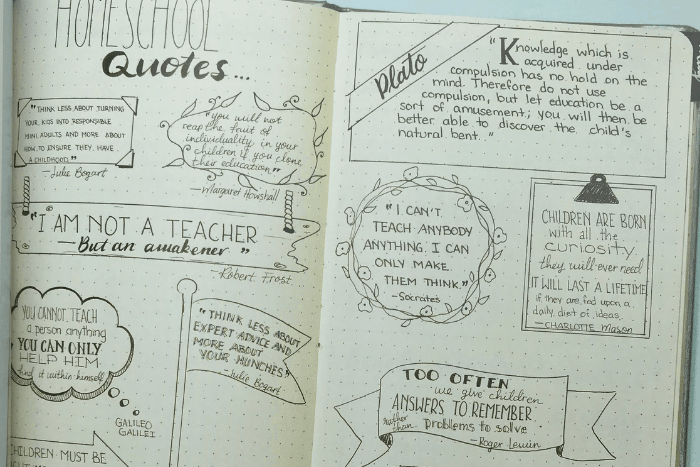 HOMESCHOOL
Quotes...
"THINK LESS ABOUT TURNING
YOUR KIDS INTO RESPONSIBLE
MINI ADULTS AND MORE ABOUT
HOW TO ENSURE THEY HAVE
A CHILDHOOD."
-Julie Bogart
"you will not
reap the fruit of
individuality in your
children if you clone
their education"
-Margaret
"I AM NOT A TEACHER
-But an awakener."
-Robert Frost
YOU CANNOT TEACH
a person anything
YOU CAN ONLY
HELP HIM
find it within himself
GALILEO
GALILEI
"THINK LESS ABOUT
EXPERT ADVICE AND
MORE ABOUT
YOUR MUNCHES"
-Julie Bogart
CHILDREN MUST BE
Plato
"Knowledge which is
acquired under
compulsion has no hold on the
mind. Therefore do not use
compulsion, but let education be a
sort of amusement; you will then be
better able to discover the child's
natural bent."
"I CAN'T
TEACH ANYBODY
ANYTHING. I CAN
ONLY MAKE
THEM THINK."
-Socrates
CHILDREN ARE BORN
with all the
curiosity
they will ever need
IT WILL LAST A LIFETIME
if they are fed upon a
daily diet of ideas.
-CHARLOTTE Mason
TOO OFTEN
we give children
ANSWERS TO REMEMBER
rather than problems to solve
-Roger Lewin